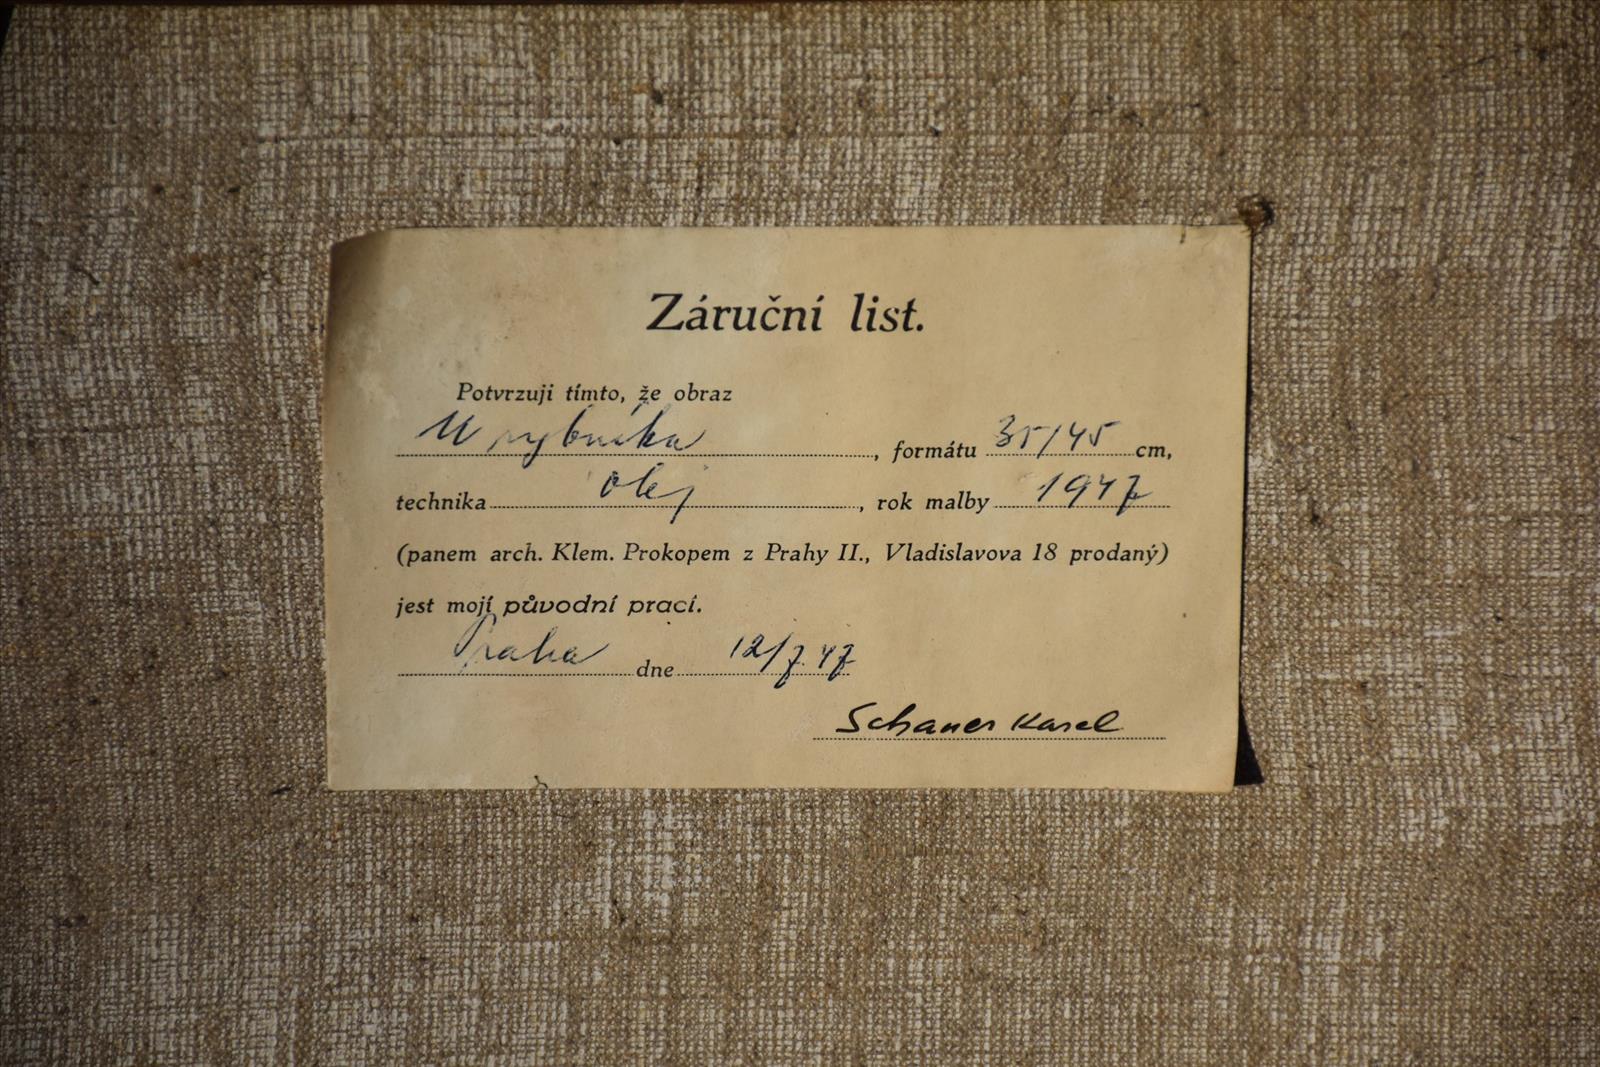 Záruční list.
Potvrzuji tímto, že obraz
U rybníka, formátu 35/45 cm,
technika olej, rok malby 1947
(panem arch. Klem. Prokopem z Prahy II., Vladislavova 18 prodaný)
jest mojí původní prací.
Praha dne 12/7. 47
Schauer Karel